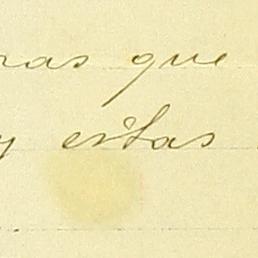 ras que
y estas